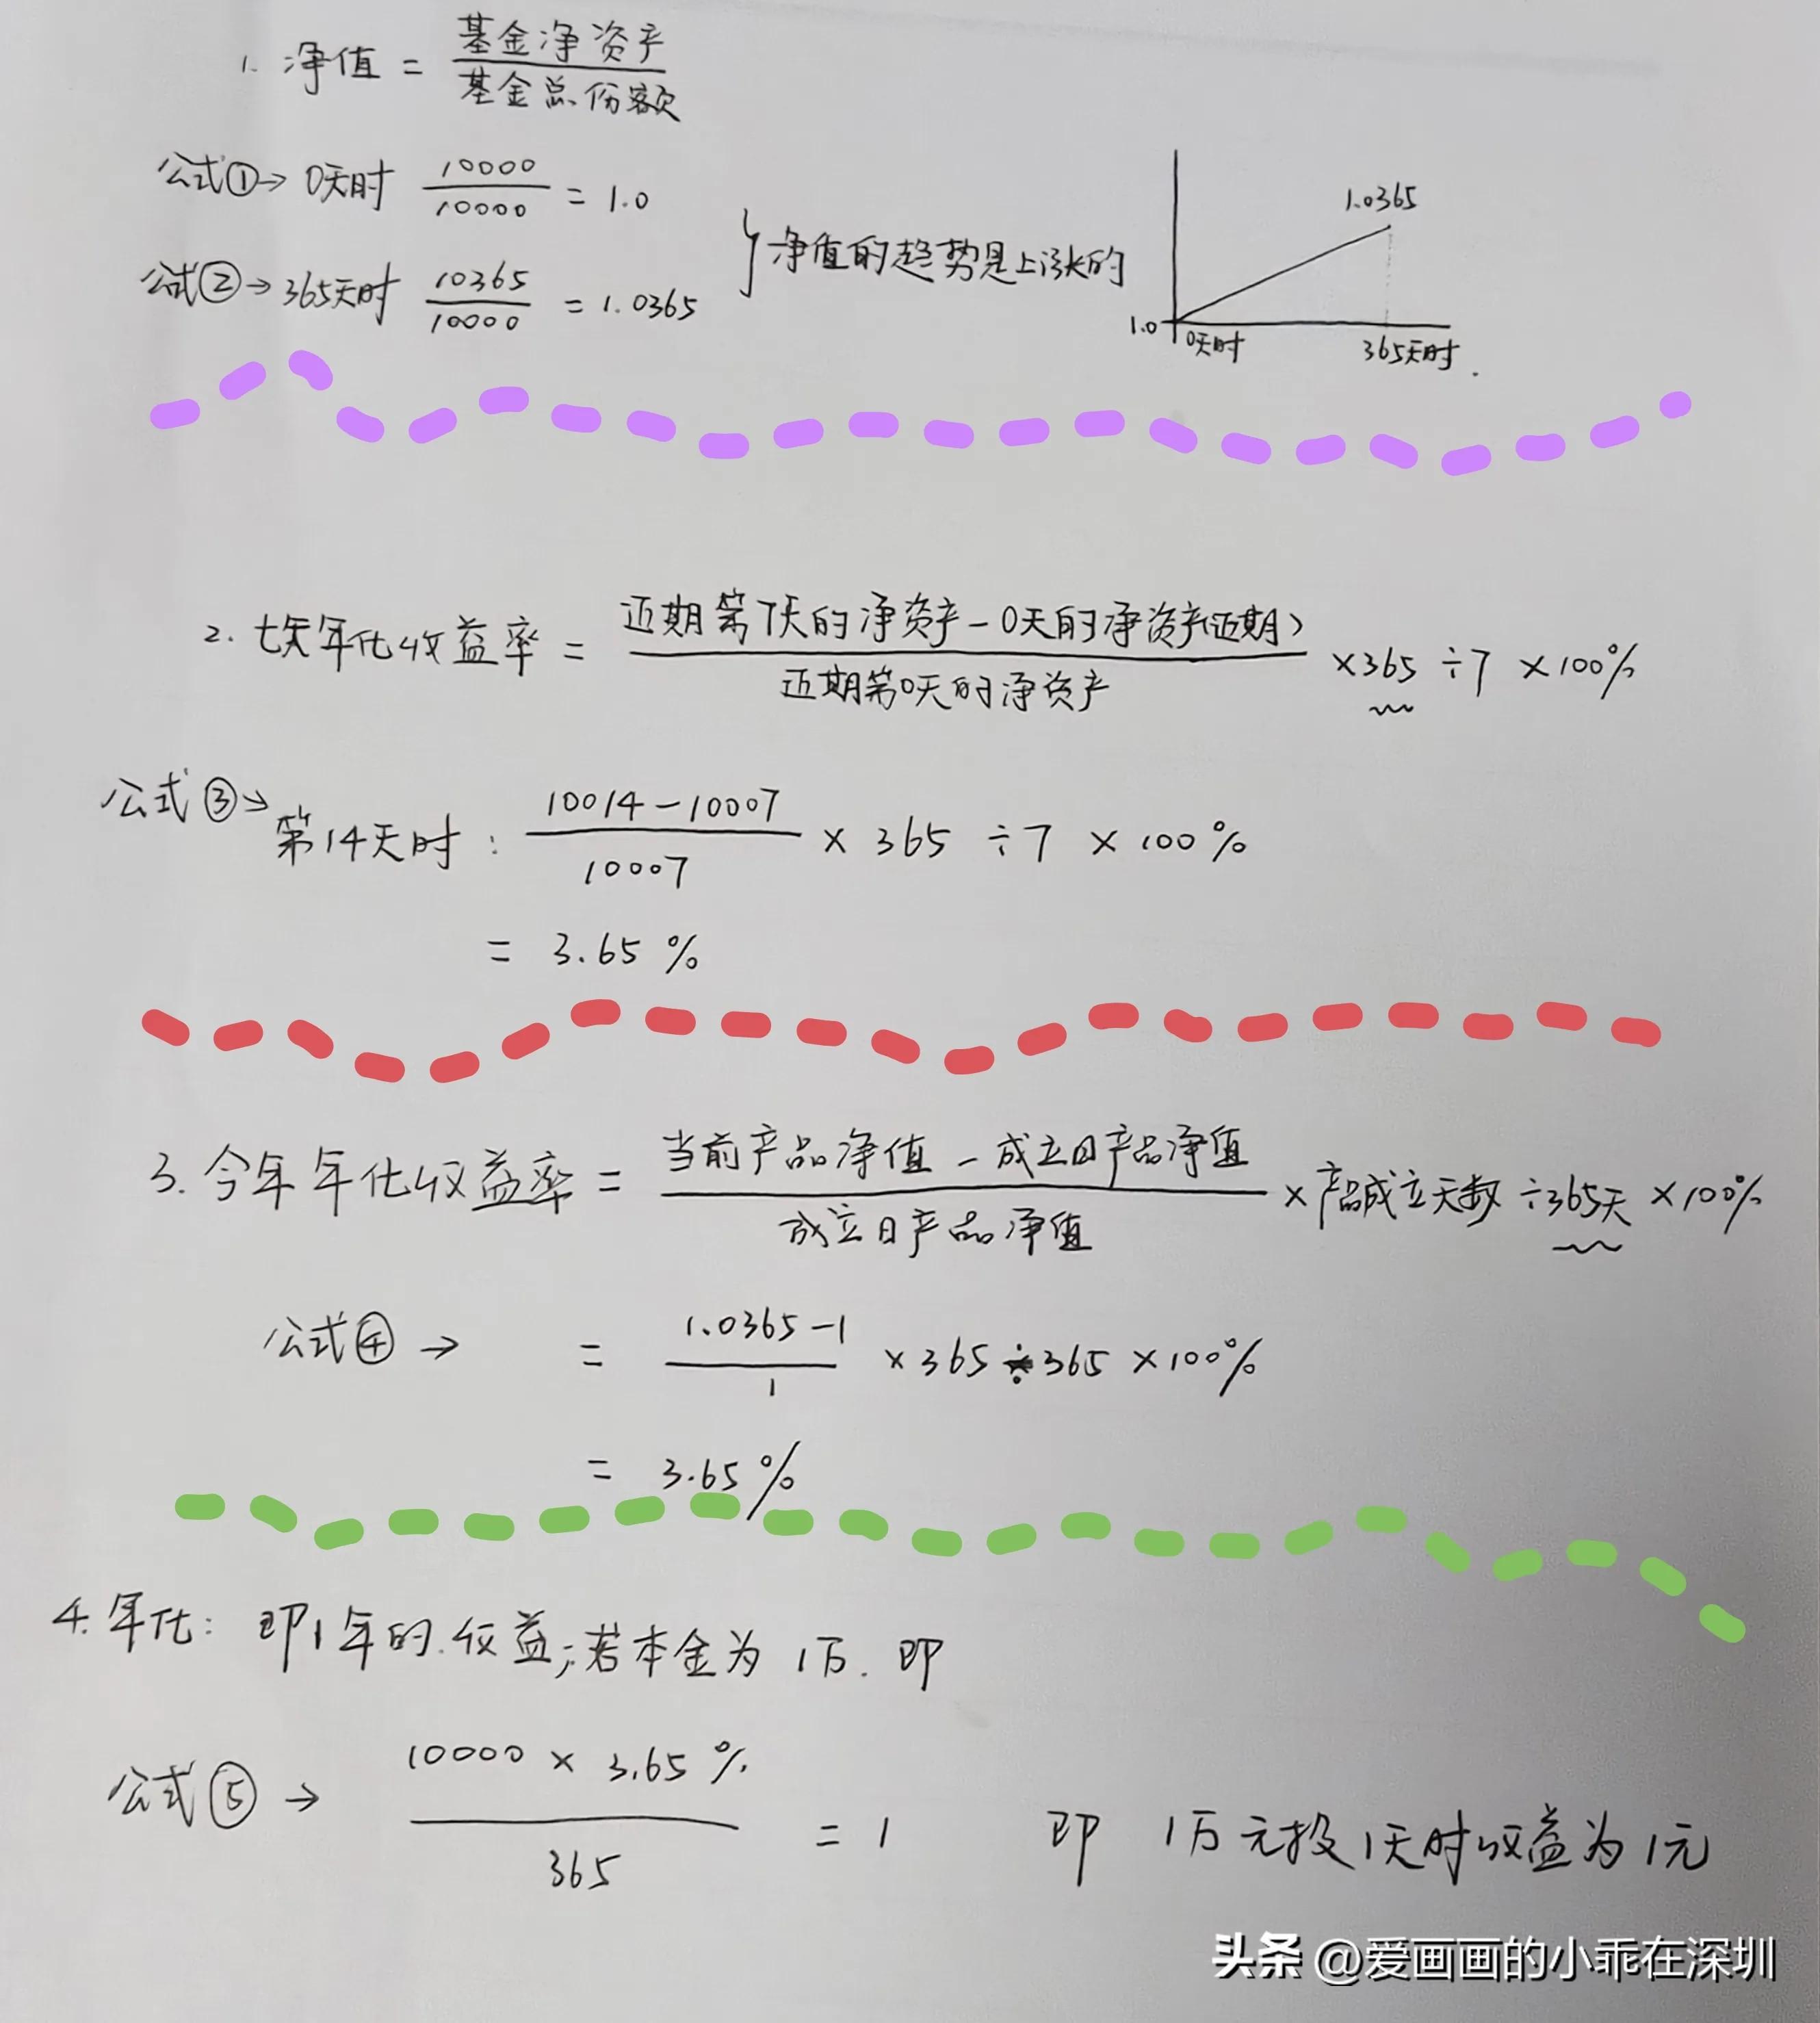 1. 净值 = 基金净资产
基金总份额
公式① → 0天时 10000
10000 = 1.0
公式② → 365天时 10365
10000 = 1.0365
} 净值的趋势是上涨的
1.0365
1.0
0天时 365天时.
2. 七天年化收益率 = 近期第7天的净资产 - 0天的净资产(近期)
近期第0天的净资产 ×365 ÷7 ×100%
公式③ →
第14天时: 10014-10007
10007 × 365 ÷7 × 100%
= 3.65 %
3. 今年年化收益率 = 当前产品净值 - 成立日产品净值
成立日产品净值 × 产品成立天数 ÷365天 ×100%
公式④ → = 1.0365-1
1 ×365÷365 ×100%
= 3.65%
4. 年化: 即1年的.收益;若本金为1万. 即
公式⑤ → 10000 × 3.65 %
365 = 1 即 1万元投1天时收益为1元
头条 @爱画画的小乖在深圳